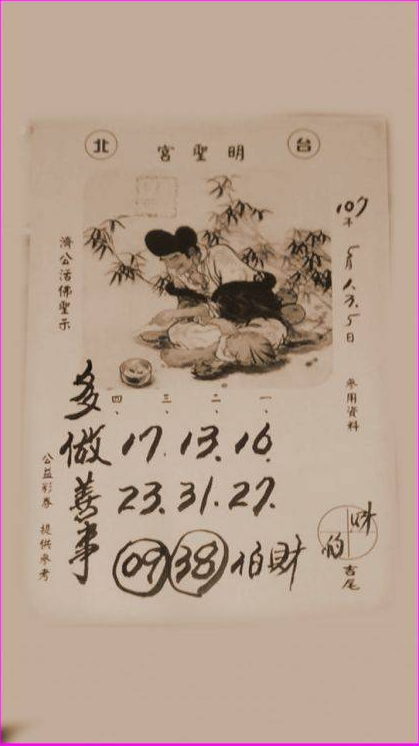 台北
明聖宮
107年
5月大方5日
參用資料
濟公活佛聖示
一、
二、
三、
四、
16.
13.
17.
27.
31.
23.
多做善事
09 38 伯財
財
的
吉尾
公益彩券 提供參考